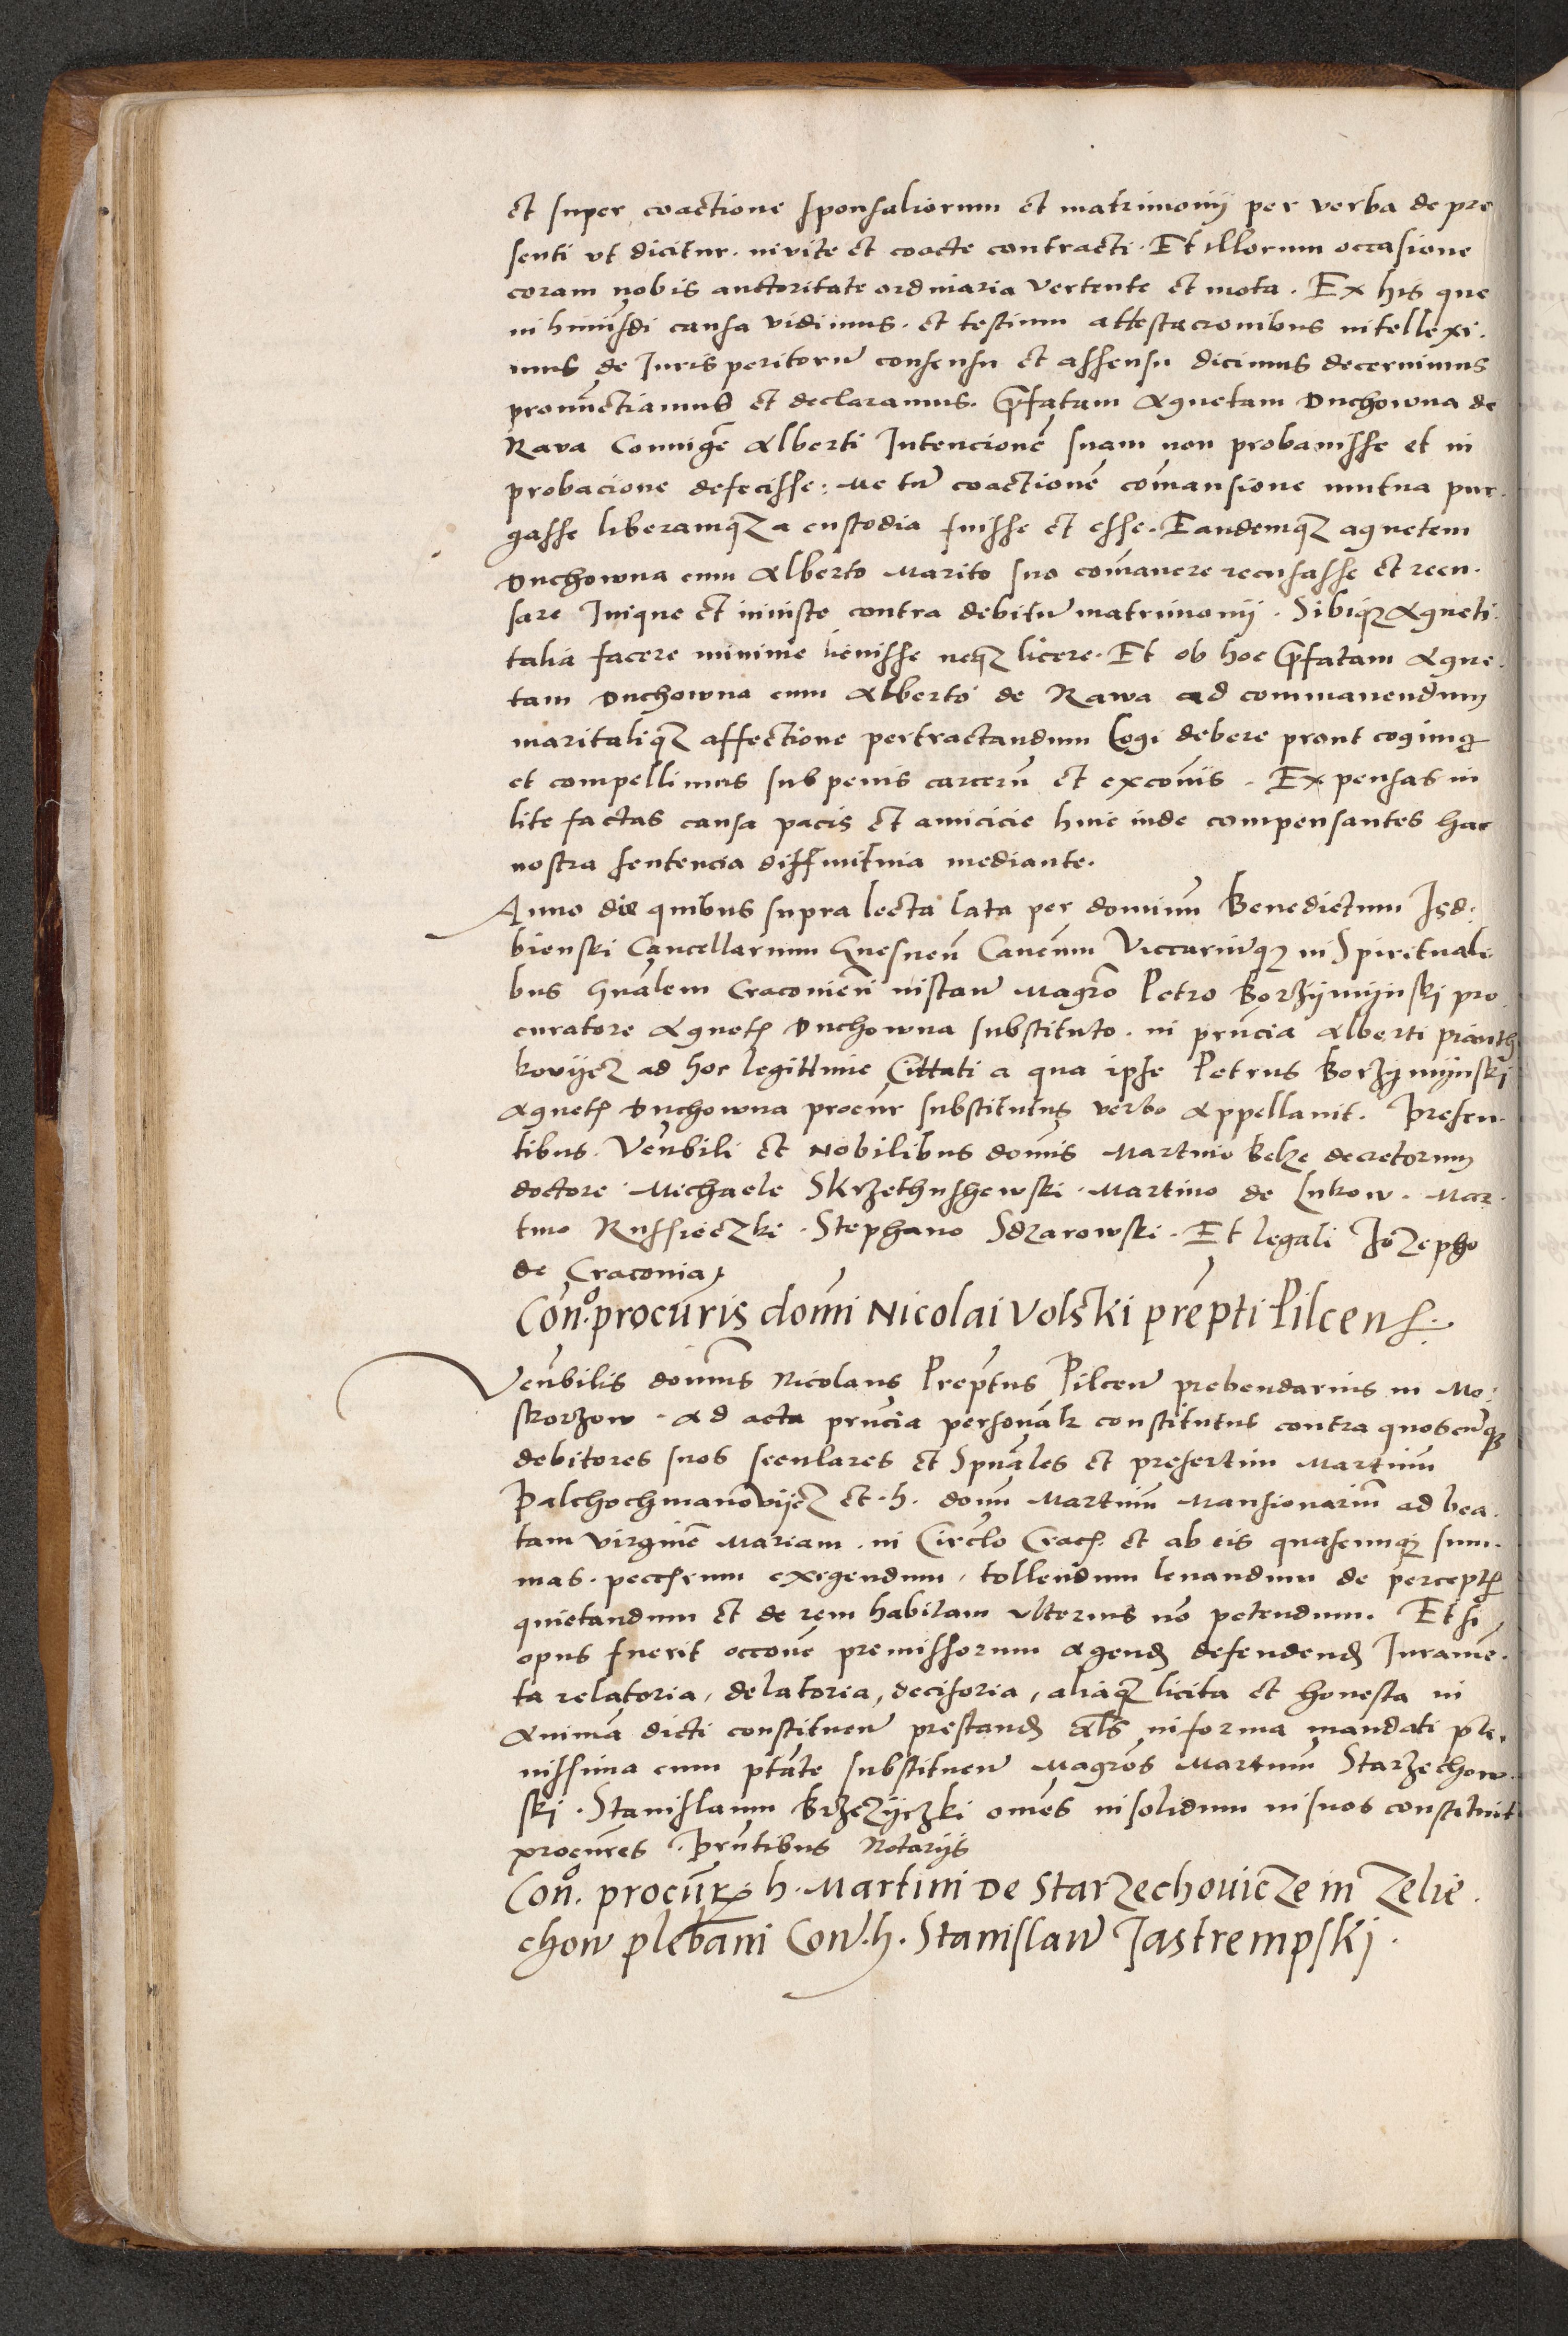 et super coactione sponsaliorum et matrimonij per verba de pre
senti vt dicitur. invite et coacte contracti. Et illorum occasione
coram nobis auctoritate ordinaria vertente et mota. Ex his que
in huiusdi causa vidimus. et testium attestacionibus intellexi.
mus de Juris peritorū consensu et assensu dicimus decernimus
pronūctiamus et declaramus. Prefatam Agnetam Duchowna de
Rava Coniugē Alberti Intencionē suam non probauisse et in
probacione defecisse: Metū coactionē com̄ansione mutua pur.
gasse liberamqʒ a custodia fuisse et esse. Eandemqʒ agnetem
Duchowna cum Alberto Marito suo com̄anere recusasse et recu.
sare Inique et iniuste contra debitū matrimonij. Sibiqʒ Agneti.
talia facere minime licuisse neqʒ licere. Et ob hoc prefatam Agne.
tam Duchowna cum Alberto de Rawa ad commanendum
maritaliqʒ affectione pertractandum Cogi debere prout cogimꝰ
et compellimus sub penis carcerū et exco̅nis. Expensas in
lite factas causa pacis et amicicie hinc inde compensantes hac
nostra sentencia diffinitiua mediante.
Anno die quibus supra lecta lata per dominū Benedictum Isd.
bienski Cancellarium Gnesneñ Canc̅um Viccariūqʒ in Spirituali
bus Gn̄alem Craconieñ instañ Magr̄o Petro Borzymijnski pro
curatore Agnetꝭ Duchowna substituto. in pn̄cia Alberti Pianth
kovijcz ad hoc legittime Cittati a qua ipse Petrus Borzymijnski
Agnetꝭ Duchowna procur̄ substitutus verbo Appellauit. Presen.
tibus. Ven̄bili et Nobilibus don̄is Martino Belze decretorum
doctore. Michaele Skrzethushewski. Martino de Lukow. Mar.
tino Russieczki. Stephano Sdzarowski. Et legali Jozepho
de Craconia
Con̄o. procur̄is don̄i Nicolai Volski prep̄ti Pilcenꝭ.
Ven̄bilis don̄us Nicolaus Prep̄tus Pilceñ prebendarius in Mo.
skorzow. Ad acta pn̄cia personalr̄ constitutus contra quoscūqʒ
debitores suos seculares et Spūales et presertim Martinū
Palchochmanovijcz et. h. don̄ Martinū Mansionariū ad bea.
tam virginē Mariam. in Circl̄o Cracꝭ et ab eis quascunqʒ sum.
mas. pecc̄arum exigendum, tollendum leuandum de perceptꝭ
quietandum et de rem habitam vlterius nō petendum. Et si
opus fuerit occo̅ne premissorum Agendꝭ defendendꝭ Juramē.
ta relatoria, delatoria, decisoria, aliaqʒ licita et honesta in
Animā dicti constitueñ prestandꝭ Al̄s in forma mandati ple.
nissima cum pt̄ate substitueñ Magr̄os Martinū Starzechow.
ski. Stanislaum Brzezijczki om̄es insolidum in suos constituit
procur̄es. Pn̄tibus Notarijs
Con̄o. procur̄ꝭ h. Martini de Starzechovicze in Zelie.
chow plebani Coñ. h. Stanislaw Jastrempski.